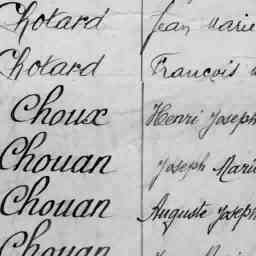 Chotard Jean Marie
Chotard François
Choux Henri Joseph
Chouan Joseph Marie
Chouan Auguste Joseph
Chouan